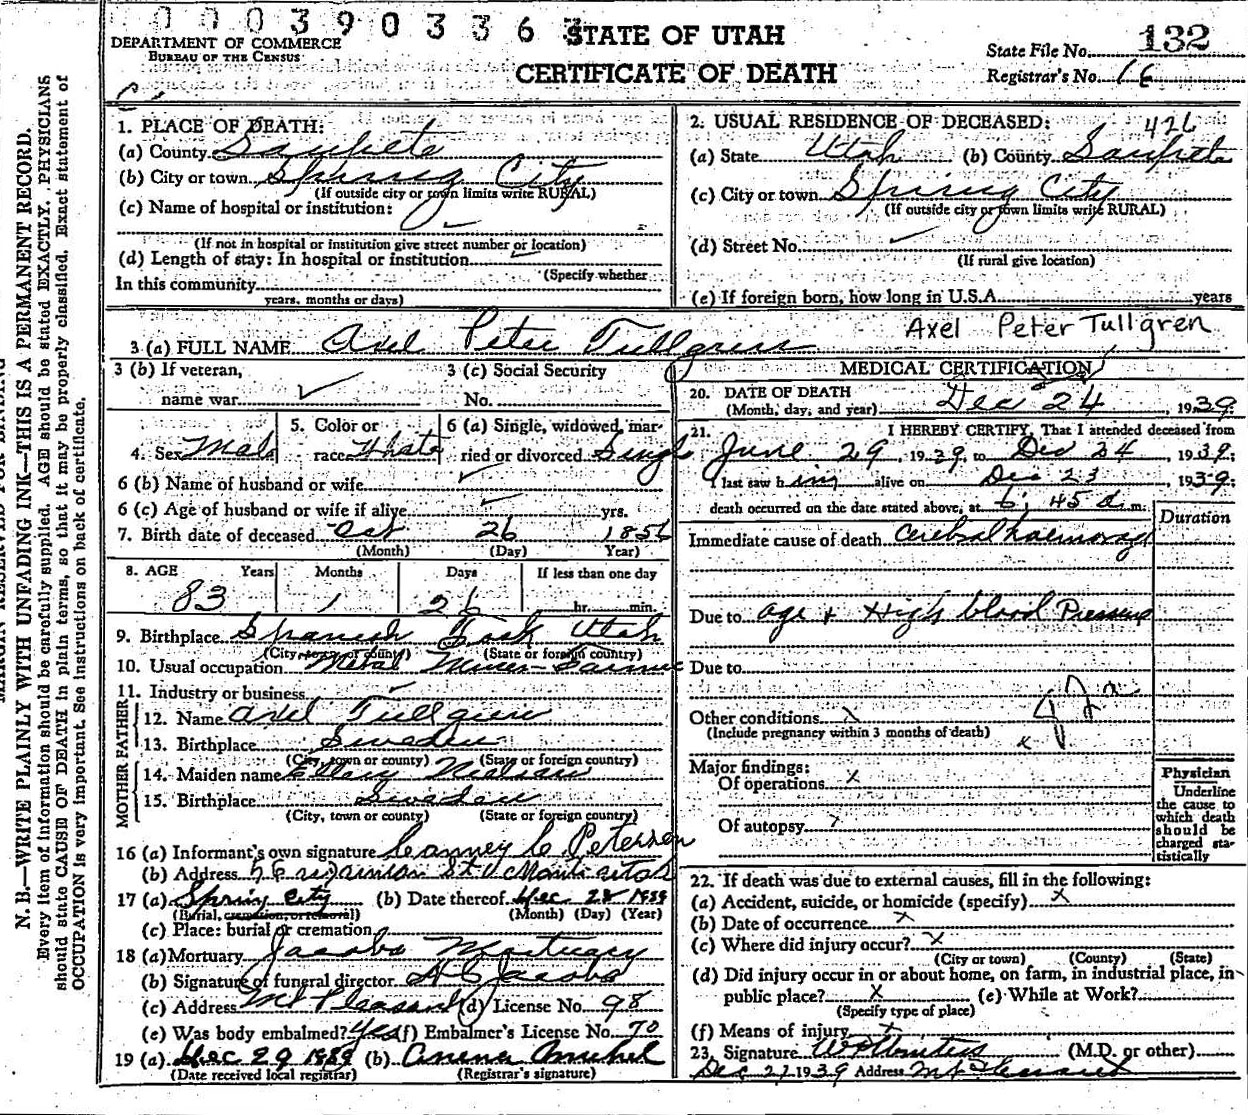 0003903363
STATE OF UTAH
CERTIFICATE OF DEATH
DEPARTMENT OF COMMERCE
BUREAU OF THE CENSUS
State File No. 132
Registrar's No. 16
N. B.—WRITE PLAINLY WITH UNFADING INK—THIS IS A PERMANENT RECORD.
Every item of information should be carefully supplied. AGE should be stated EXACTLY. PHYSICIANS
should state CAUSE OF DEATH in plain terms, so that it may be properly classified. Exact statement of
OCCUPATION is very important. See instructions on back of certificate.
1. PLACE OF DEATH:
(a) County Sanpete
(b) City or town Spring City
(If outside city or town limits write RURAL)
(c) Name of hospital or institution:
(If not in hospital or institution give street number or location)
(d) Length of stay: In hospital or institution
(Specify whether
In this community
years, months or days)
2. USUAL RESIDENCE OF DECEASED: 426
(a) State Utah (b) County Sanpete
(c) City or town Spring City
(If outside city or town limits write RURAL)
(d) Street No.
(If rural give location)
(e) If foreign born, how long in U.S.A. years
3 (a) FULL NAME Axel Peter Tullgren Axel Peter Tullgren
3 (b) If veteran,
name war
3 (c) Social Security
No.
4. Sex Male
5. Color or
race White
6 (a) Single, widowed, mar-
ried or divorced Single
6 (b) Name of husband or wife
6 (c) Age of husband or wife if alive yrs.
7. Birth date of deceased Oct 26 1856
(Month) (Day) Year)
8. AGE Years Months Days If less than one day
83 1 26 hr. min.
9. Birthplace Spanish Fork Utah
(City, town or county) (State or foreign country)
10. Usual occupation Metal Miner-Farmer
11. Industry or business
FATHER
12. Name Axel Tullgren
13. Birthplace Sweden
(City, town or county) (State or foreign country)
MOTHER
14. Maiden name Nielson
15. Birthplace Sweden
(City, town or county) (State or foreign country)
16 (a) Informant's own signature C Petersen
(b) Address St Manti Utah
17 (a) Spring City (b) Date thereof Dec 28 1939
(Burial, cremation, or removal) (Month) (Day) (Year)
(c) Place: burial or cremation
18 (a) Mortuary Jacobs Mortuary
(b) Signature of funeral director H C Jacobs
(c) Address Mt Pleasant (d) License No. 98
(e) Was body embalmed? Yes (f) Embalmer's License No. 70
19 (a) Dec 29 1939 (b)
(Date received local registrar) (Registrar's signature)
MEDICAL CERTIFICATION
20. DATE OF DEATH
(Month, day, and year) Dec 24, 1939
21. I HEREBY CERTIFY, That I attended deceased from
June 29, 1939, to Dec 24, 1939;
I last saw him alive on Dec 23, 1939;
death occurred on the date stated above, at 6:45 a. m.
Duration
Immediate cause of death cerebral haemorage
Due to age + High blood Pressure
Due to
Other conditions x
(Include pregnancy within 3 months of death) x
Major findings:
Of operations x
Of autopsy
Physician
Underline
the cause to
which death
should be
charged sta-
tistically
22. If death was due to external causes, fill in the following:
(a) Accident, suicide, or homicide (specify) x
(b) Date of occurrence x
(c) Where did injury occur? x
(City or town) (County) (State)
(d) Did injury occur in or about home, on farm, in industrial place, in
public place? x (e) While at Work?
(Specify type of place)
(f) Means of injury x
23. Signature (M.D. or other)
Dec 27 1939 Address Mt Pleasant